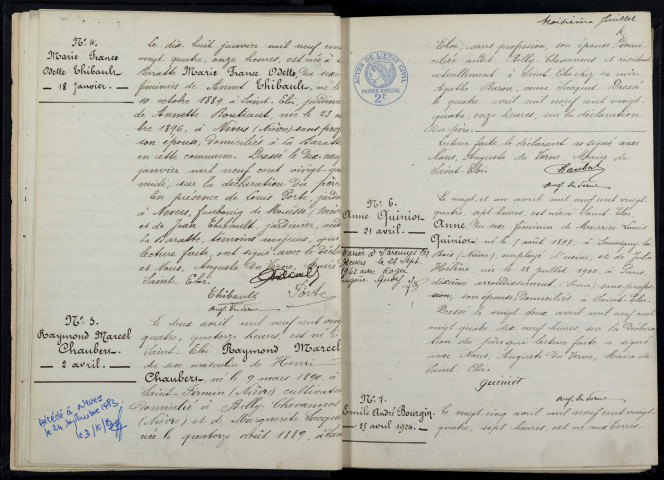 N° 4.
Marie France
Odette Thibault
18 Janvier.
Le dix huit janvier mil neuf cent
vingt quatre, onze heures, est née à la
Baratte Marie France Odette, du sexe
féminin de Thibault, né le
10 octobre 1889 à Saint Eloi, jardinier
de Annette Boutiaut, née le 23
bre 1896, à Nevers (Nièvre) sans prof
son épouse, domiciliés à la Baratte
en cette commune. Dressé le dix neuf
janvier mil neuf cent vingt-qu
midi, sur la déclaration du père
En présence de Louis Porte, jardi
à Nevers, faubourg de Mouësse,
et de Jean Thibault, jardinier, aud
la Baratte, témoins majeurs, qui
lecture faite, ont signé avec le décla
et Nous, Auguste du Verne, Maire de
Saint Eloi.
Thibault Porte
Aug. du Verne
N° 5.
Raymond Marcel
Chaubert
2 avril.
Décédé à Nevers
le 24 septembre 1983
le 3/10/83
Le deux avril mil neuf cent vingt
quatre, quatorze heures, est né à
Saint Eloi Raymond Marcel
du sexe masculin de Henri
Chaubert né le 9 mars 1890, à
Saint-Firmin (Nièvre) cultivateur
domicilié à Billy Chevannes
(Nièvre) et de Marguerite Jacquet
née le quatorze août 1889, à
troisième feuillet
ACTES DE L'ÉTAT CIVIL
PAPIER SPÉCIAL
2F
Eloi, sans profession, son épouse, domi-
ciliée audit Billy Chevannes et résidant
actuellement à Saint Eloi chez sa mère
Agathe Baron, veuve Jacquet. Dressé
le quatre avril mil neuf cent vingt-
quatre, onze heures, sur la déclaration
du père.
Lecture faite, le déclarant a signé avec
Nous, Auguste du Verne Maire de
Saint Eloi.
Chaubert
Aug. du Verne
N° 6.
Anne Quiniot
21 avril.
Mariée à Varennes les
Nevers le 26 Sept.
1942 avec Roger
Eugène
Le vingt et un avril mil neuf cent vingt-
quatre, sept heures, est née à Saint Eloi
Anne du sexe féminin de Maurice Louis
Quiniot, né le 5 août 1897, à Souvigny les
Bois (Nièvre), employé d'usine, et de
Hélène née le 28 juillet 1900, à Paris
dixième arrondissement (Seine) sans profes-
sion, son épouse, domiciliés à Saint-Eloi.
Dressé le vingt deux avril mil neuf cent
vingt-quatre dix neuf heures, sur la déclara-
tion du père qui lecture faite a signé
avec Nous, Auguste du Verne, Maire de
Saint Eloi.
Quiniot
Aug. du Verne
N° 7.
Emile André Bourgin
25 avril 1924.
Le vingt cinq avril mil neuf cent vingt-
quatre, sept heures, est né aux Terres